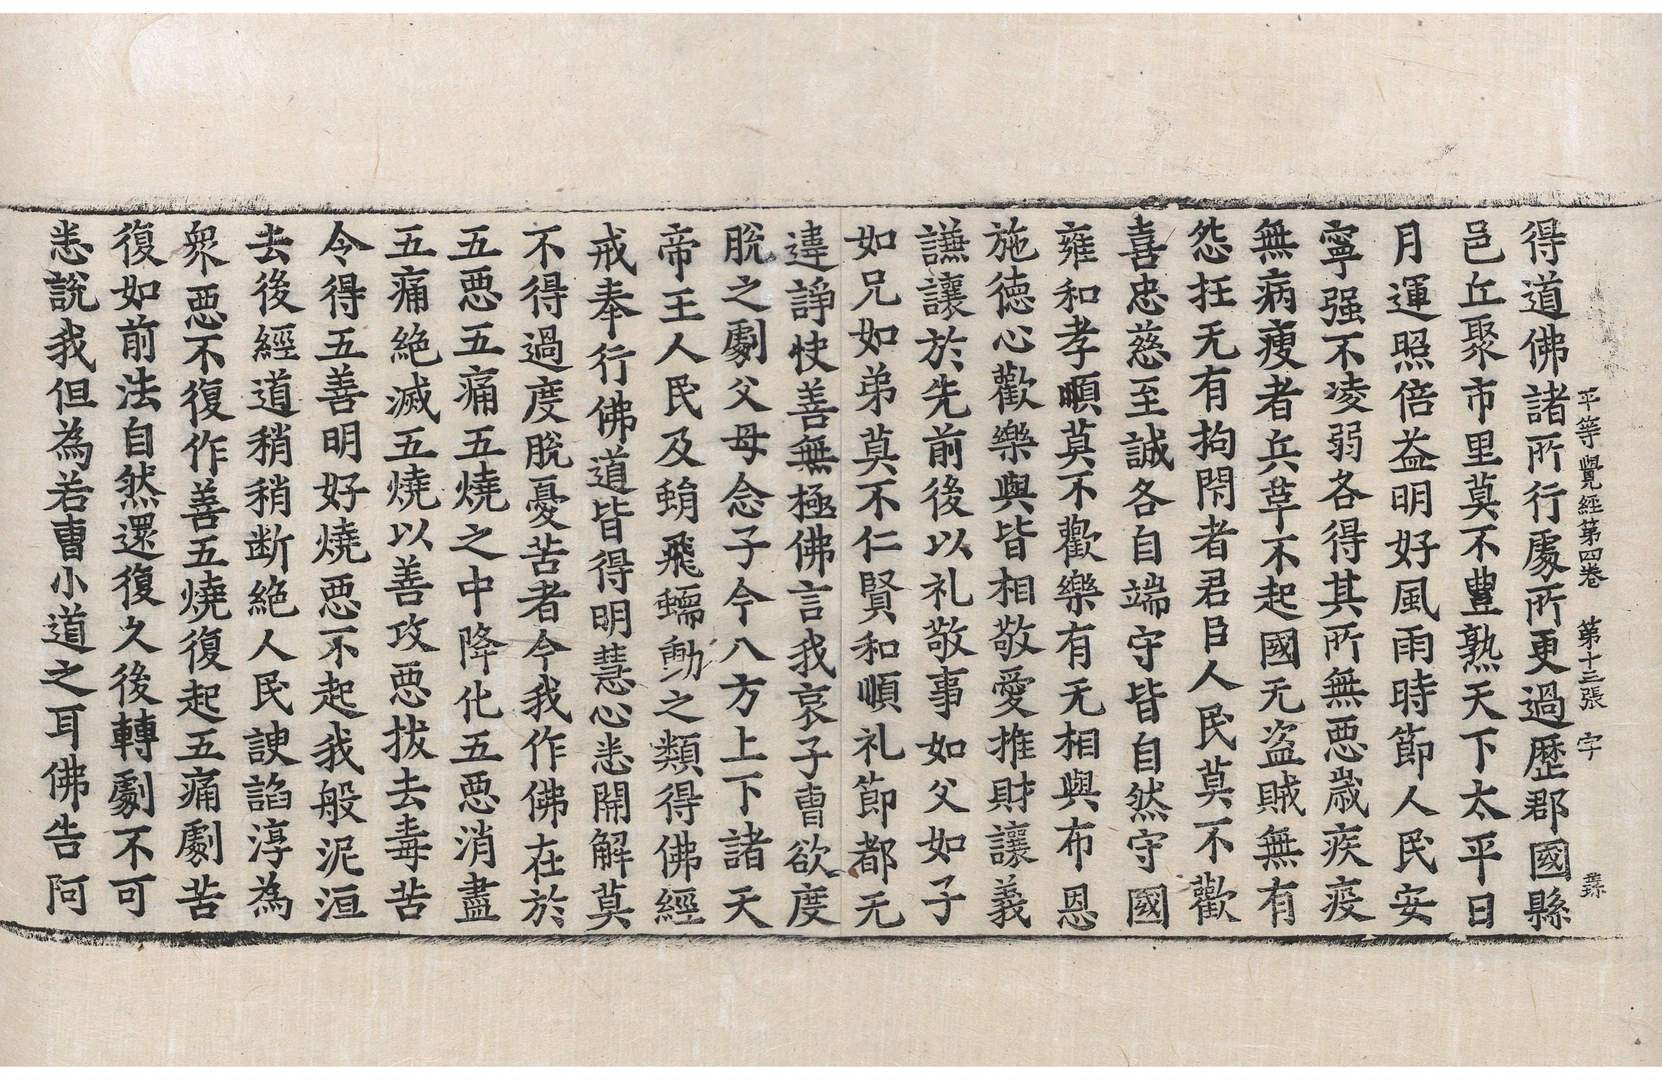 平等覺經第四卷 第十三張 字
得道佛諸所行處所更過歷郡國縣
邑丘聚市里莫不豐熟天下太平日
月運照倍益明好風雨時節人民安
寧强不凌弱各得其所無惡歲疾疫
無病瘦者兵革不起國无盜賊無有
怨抂无有拘閇者君臣人民莫不歡
喜忠慈至誠各自端守皆自然守國
雍和孝順莫不歡樂有无相與布恩
施德心歡樂與皆相敬愛推財讓義
謙讓於先前後以礼敬事如父如子
如兄如弟莫不仁賢和順礼節都无
違諍快善無極佛言我哀子曹欲度
脫之劇父母念子今八方上下諸天
帝王人民及蜎飛蠕動之類得佛經
戒奉行佛道皆得明慧心悉開解莫
不得過度脫憂苦者今我作佛在於
五惡五痛五燒之中降化五惡消盡
五痛絕滅五燒以善攻惡拔去毒苦
令得五善明好燒惡不起我般泥洹
去後經道稍稍断絕人民諛諂淳為
衆惡不復作善五燒復起五痛劇苦
復如前法自然還復久後轉劇不可
悉說我但為若曹小道之耳佛告阿